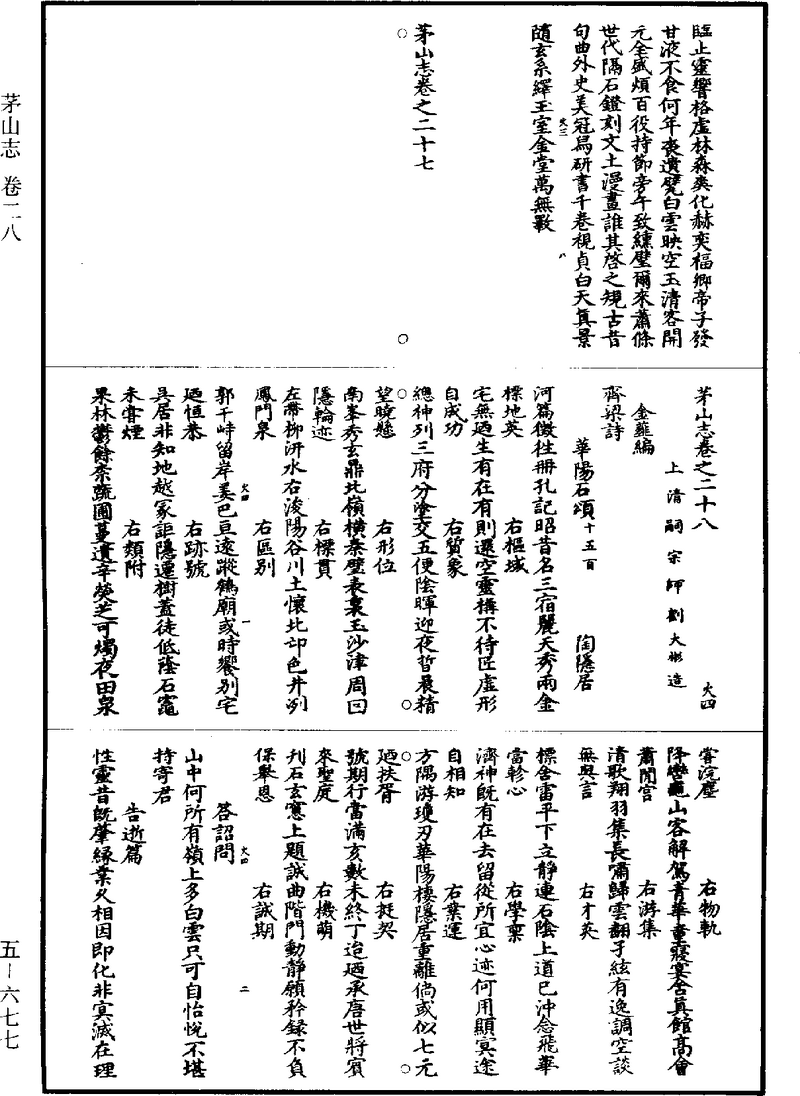 臨止靈響格虛林森爽化赫奕福鄉帝子發
甘液不食何年喪遺甓白雲映空玉清客開
元全盛煩百役持節旁午致纁璧爾來蕭條
世代隔石鐙刻文土漫畫誰其啓之規古昔
句曲外史美冠舄研書千卷視貞白天眞景
隨玄系繹玉室金堂萬無斁
大三
八
茅山志卷之二十七
茅山志卷之二十八
大四
上清嗣宗師劉大彬造
金薤編
齊梁詩
華陽石頌十五首
陶隱居
河篇徵往冊孔記昭昔名三宿麗天秀兩金
標地英
右樞域
宅無廼生有在有則還空靈構不待匠虛形
自成功
右質象
總神列三府分塗交五便陰暉迎夜晢晨精
望曉懸
右形位
南峯秀玄鼎北嶺橫秦璧表裏玉沙津周回
隱輪迹
右標貫
左帶柳汧水右浚陽谷川土懷北邙色井冽
鳳門泉
右區別
郭千峙留岸姜巴亘遠蹤鶴廟或時饗別宅
大四
一
廼恒恭
右跡號
吳居非知地越冢詎隱遷樹蓋徒低蔭石竈
未嘗煙
右類附
果林鬱餘柰蔬圃蔓遺辛熒芝可燭夜田泉
嘗浣塵
右物軌
降鸞龜山客解駕青華童寢宴含眞館高會
蕭閒宮
右游集
清歌翔羽集長嘯歸雲翻孑絃有逸調空談
無與言
右才英
標舍雷平下立靜連石陰上道已沖念飛華
當軫心
右學稟
濟神旣有在去留從所宜心迹何用顯冥途
自相知
右業運
方隅游瓊刃華陽棲隱居重離倘或似七元
廼扶胥
右挺契
號期行當滿亥數未終丁迨廼承唐世將賓
來聖庭
右機萌
刋石玄窻上題誠曲階門動靜願矜錄不負
保舉恩
右誠期
答詔問
大四
二
山中何所有嶺上多白雲只可自怡悅不堪
持寄君
告逝篇
性靈昔旣肇緣業久相因即化非冥滅在理
茅山志 卷二八
五—六七七